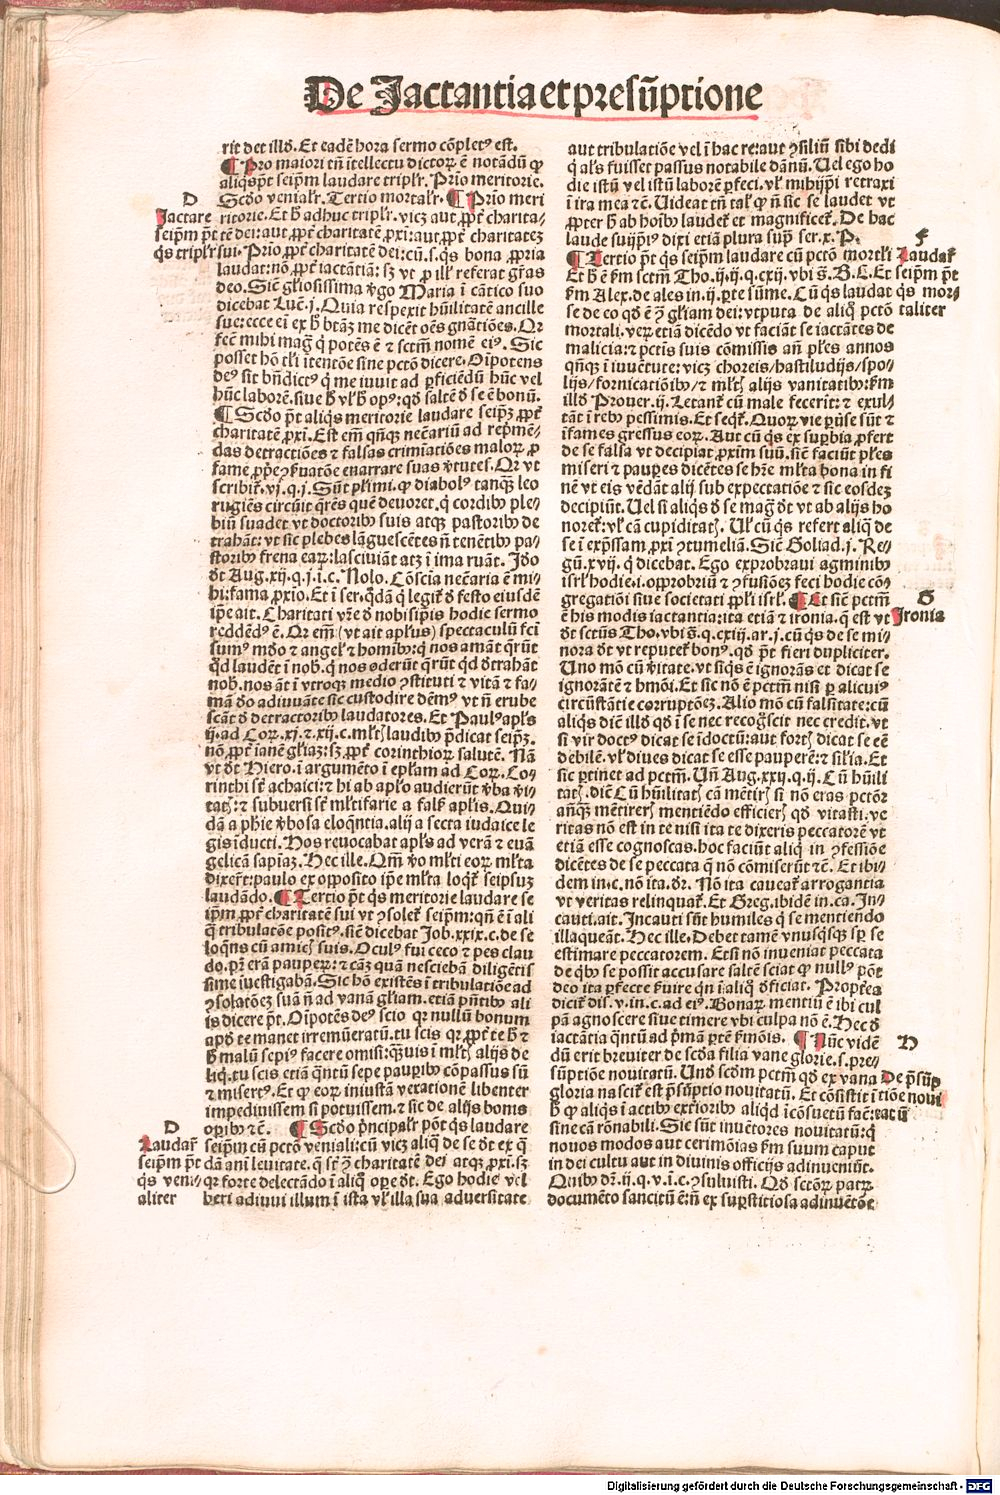 De Jactantia et presūptione
rit det illō. Et eadē hora sermo cōpletꝰ est.
¶ Pro maiori tñ ītellectu dictoꝝ ē notādū ꝙ
aliqs pt̄ seipm̄ laudare triplr̄. Prīo meritorie.
Scd̓o venialr̄. Tertio mortalr̄. ¶ Prīo meri
ritorie. Et ƀ adhuc triplr̄. vicꝫ aut ꝓpt̄ charita-
tē dei: aut ꝓpt̄ charitatē ꝓxi: aut ꝓpt̄ charitateꝫ
sui. Prīo ꝓpt̄ charitatē dei: cū .s. qs bona ꝓpria
laudat: nō ꝓpt̄ iactātiā: sꝫ vt ꝑ illꝰ referat gr̄as
deo. Sic̄ gl̄iosissima ṽgo Maria ī cātico suo
dicebat Luē. j. Quia respexit hūilitatē ancille
sue: ecce eī ex ƀ btāꝫ me dicēt oēs gnātiōes. Qꝛ
fec̄ mihi maḡ q̇ potēs ē ⁊ sctm̄ nomē eiꝰ. Sic
posset hō tl̄i ītentōe sine pctō dicere. Oīpotens
deꝰ sit bn̄dictꝰ q̇ me iuuit ad ꝑficiēdū hūc vel
hūc laborē. siue ƀ vl̄ ƀ opꝰ: qđ saltē đ se ē bonū.
¶ Scd̓o pt̄ aliqs meritorie laudare seipꝫ ꝓpt̄
charitatē ꝓxi. Est em̄ qn̄qꝫ nec̄ariū ad repm̄ē-
das detractiōes ⁊ falsas crimiatiōes maloꝝ ꝓ
fame ꝓpe ꝯẜuatōe enarrare suas ṽtutes. Qꝛ vt
scribit̄. vj. q. j. Sūt pl̄imi. ꝙ diabolꝰ tanqꝫ leo
rugiēs circūit q̄rēs quē deuoret. q̇ cordibꝰ ple-
biū suadet vt doctoribꝰ suis atqꝫ pastoribꝰ de
trahāt: vt sic plebes lāguescētes n̄ tenētibꝰ pa-
storibꝰ frena eaꝝ: lasciuiāt atqꝫ ī ima ruāt. Jdo
đt Aug. xij. q. j. i. c. Nolo. Cōscia nec̄aria ē mi-
hi: fama ꝓxio. Et ī ser. qđā q̇ legit̄ đ festo eiusdē
ip̄e ait. Charitati vr̄e đ nobisip̄is hodie sermo
reddēdꝰ ē. Qꝛ em̄ (vt ait apl̄us) spectaculū fcī
sumꝰ mđo ⁊ angel̄ ⁊ hoībꝰ: q̇ nos amāt q̄rūt
qđ laudēt ī nob̄. q̇ nos oderūt q̄rūt qđ đtrahāt
nob̄. nos āt ī vtroqꝫ medio ꝯstituti ⁊ vitā ⁊ fa-
mā đo adiuuāte sic custodire dēmꝰ vt n̄ erube
scāt đ detractoribꝰ laudatores. Et Paulꝰ apl̄s
ij. ad Coꝝ. xj. ⁊. xij. c. ml̄tꝭ laudibꝰ p̄dicat seipꝫ.
nō ꝓpt̄ ianē gl̄iaꝫ: sꝫ ꝓpt̄ corinthioꝝ salutē. Nā
vt đt Hiero. ī argumēto ī ep̄lam ad Coꝝ. Co-
rinthi st̄ achaici: ⁊ hi ab apl̄o audierūt ṽba ṽi-
tatꝭ: ⁊ subuersi st̄ ml̄tifarie a fals̄ apl̄is. Qui-
dā a phīe ṽbosa eloq̄ntia. alij a secta iudaice le
gis īducti. Hos reuocabat apl̄s ad verā ⁊ euā
gelicā sapīaꝫ. Hec ille. Qm̄ ṽo ml̄ti eoꝝ ml̄ta
dixer̄t: paulo ex opposito ip̄e ml̄ta loqt̄ seipsuꝫ
laudādo. ¶ Tertio pt̄ qs meritorie laudare se
ipm̄ ꝓpt̄ charitatē sui vt ꝯsolet̄ seipm̄: qn̄ ē ī ali
q̄ tribulatōe positꝰ. sic̄ dicebat Job. xxix. c. de se
loq̄ns cū amicꝭ suis. Oculꝰ fui ceco ⁊ pes clau
do. pr̄ erā pauperꝝ: ⁊ cāꝫ quā nesciebā diligētis
sime īuestigabā. Sic hō existēs ī tribulatiōe ad
ꝯsolatōeꝫ suā n̄ ad vanā gl̄iam. etiā pn̄tibꝰ ali
is dicere pt̄. Oīpotēs deꝰ scio qꝛ nullū bonum
apđ te manet irremūeratū. tu scis qꝛ ꝓpt̄ te ƀ ⁊
ƀ malū sepiꝰ facere omisi: q̄uis ī ml̄tꝭ alijs de
liq̄. tu scis etiā q̄ntū sepe paupibꝰ cōpassus sū
⁊ misertꝰ. Et ꝙ eoꝝ iniustā vexationē libenter
impediuissem si potuissem. ⁊ sic de alijs bonis
oꝑibꝰ ⁊c̄. ¶ Scd̓o pn̄cipalr̄ pōt qs laudare
seipm̄ cū pctō veniali: cū vicꝫ aliq̇ de se đt ex q̄
dā anī leuitate. q̄ st̄ ꝯ charitatē dei atqꝫ ꝓxi. sꝫ
qꝛ forte delectādo ī aliq̄ oꝑe đt. Ego hodie vel
heri adiuui illum ī ista vl̄ illa sua aduersitate
D
Jactare
seipm̄ pt̄
qs triplr̄
D
Laudar̄
seipm̄ pt̄
qs veni-
aliter
aut tribulatiōe vel ī hac re: aut ꝯsiliū sibi dedi
q̇ al̄s fuisset passus notabile dānū. Uel ego ho
die istū vel istū laborē ꝑfeci. vl̄ mihijpi retraxi
ī ira mea ⁊c̄. Uideat tn̄ tal̄ ꝙ n̄ sic se laudet vt
ꝓpter ƀ ab hoībꝰ laudet̄ et magnificet̄. De hac
laude suijpiꝰ dixi etiā plura supͣ ser. x. P.
¶ Tertio pt̄ qs seipm̄ laudare cū pctō mortl̄i
Et ƀ ē ẜm sctm̄ Tho. ij. ij. q. cxij. vbi s̄. B. C. Et
ẜm Alex. de ales in. ij. ꝑte sūme. Cū qs laudat
se de eo qđ ē ꝯ gl̄iam dei: vtputa de aliq̇ pctō
mortali. veꝝ etiā dicēdo vt faciāt se iactātes de
malicia: ⁊ pctīs suis cōmissis an̄ pl̄es annos
qn̄qꝫ ī iuuētute: vicꝫ choreis/hastiludijs/spo-
lijs/fornicatiōibꝰ/⁊ ml̄tꝭ alijs vanitatibꝰ: ẜm
illđ Prouer. ij. Letant̄ cū male fecerit: ⁊ exul-
tāt ī rebꝰ pessimis. Et seqt̄. Quoꝝ vie ꝑūse sūt ⁊
īfames gressus eoꝝ. Aut cū qs ex suꝑbia ꝓfert
de se falsa vt decipiat ꝓxim suū. sic̄ faciūt pl̄es
miseri ⁊ pauꝑes dicētes se hr̄e ml̄ta bona in fi
nē vt eis vēdāt alij sub expectatiōe ⁊ sic eosdeꝫ
decipiūt. Uel si aliqs đ se maḡ đt vt ab alijs ho
noret̄: vl̄ cā cupiditatꝭ. Ul̄ cū qs refert aliq̇ de
se ī exp̄ssam ꝓxi ꝯtumeliā. Sic̄ Goliad. j. Re-
gū. xvij. q̇ dicebat. Ego exprobraui agminibꝰ
isrl̄ hodie. i. opprobriū ⁊ ꝯfusiōeꝫ feci hodie cō-
gregatiōi siue societati ppl̄i isrl̄. ¶ Et sic̄ pctm̄
ē his modis iactantia: ita etiā ⁊ ironia. q̄ est vt
đt sctūs Tho. vbi s̄. q. cxiij. ar. j. cū qs de se mi-
nora đt vt reputet̄ bonꝰ. qđ pt̄ fieri dupliciter.
Uno mō cū ṽitate. vt siqs ē ignorās et dicat se
ignorātē ⁊ hmōi. Et sic nō ē pctm̄ nisi ꝑ alicuiꝰ
circūstātie corruptōeꝫ. Alio mō cū falsitate: cū
aliqs diē illđ qđ ī se nec recog̓scit nec credit. vt
si vir doctꝰ dicat se īdoctū: aut fortꝭ dicat se eē
debilē. vl̄ diues dicat se esse pauperē: ⁊ sil̄ia. Et
sic ꝑtinet ad pctm̄. Un̄ Aug. xxij. q. ij. Cū hūili
tatꝭ. diē Cū hūilitatꝭ cā mētirꝭ si nō eras pctōꝛ
an̄qꝫ mētirerꝭ mentiēdo efficierꝭ qđ vitasti. ve
ritas nō est in te nisi ita te dixeris peccatorē vt
etiā esse cognoscas. hoc faciūt aliq̇ in ꝯfessiōe
dicētes de se peccata q̄ nō cōmiserūt ⁊c̄. Et ibi-
dem in. c. nō ita. dr̄. Nō ita caueat̄ arrogantia
vt veritas relinquat̄. Et Greg. ibidē in. ca. In-
cauti. ait. Incauti sūt humiles q̇ se mentiendo
illaqueāt. Hec ille. Debet tamē vnusqsqꝫ sꝑ se
estimare peccatorem. Etsi nō inueniat peccata
de qbꝰ se possit accusare saltē sciat ꝙ nullꝰ pōt
deo ita ꝑfecte ẜuire qn̄ ī aliq̇ đficiat. Propt̄ea
dicit̄ dis. v. in. c. ad eiꝰ. Bonaꝝ mentiū ē ibi cul
pā agnoscere siue timere vbi culpa nō ē. Hec đ
iactātia q̄ntū ad pͥmā ꝑtē ẜmōis. ¶ Nūc vidē
dū erit breuiter de scđa filia vane glorie. s. pre-
sūptiōe nouitatū. Unđ scđm pctm̄ qđ ex vana
gloria nascit̄ est p̄sūptio nouitatū. Et cōsistit ī
ƀ ꝙ aliqs ī actibꝰ ext̄ioribꝰ aliqđ īcōsuetū faē:
sine cā rōnabili. Sic sūt inuētores nouitatū: q̇
nouos modos aut cerimōias ẜm suum caput
in dei cultu aut in diuinis officijs adinueniūt.
Quibꝰ dr̄. ij. q. v. ī. c. ꝯsuluisti. Qđ sctōꝝ patꝝ
documēto sancitū ē: n̄ ex suꝑstitiosa adinuētōe
F
Laudar̄
seipm̄ pt̄
qs mor-
taliter
G
Jronia
H
De p̄sūp
tiōe noui
tatū